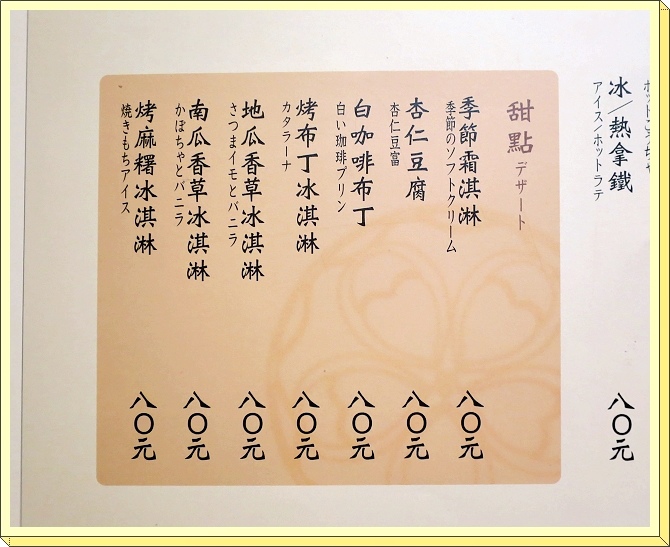 冰/熱拿鐵
アイス/ホットラテ
八〇元
甜點 デザート
季節霜淇淋
季節のソフトクリーム
八〇元
杏仁豆腐
杏仁豆富
八〇元
白咖啡布丁
白い珈琲プリン
八〇元
烤布丁冰淇淋
カタラーナ
八〇元
地瓜香草冰淇淋
さつまイモとバニラ
八〇元
南瓜香草冰淇淋
かぼちゃとバニラ
八〇元
烤麻糬冰淇淋
焼きもちアイス
八〇元